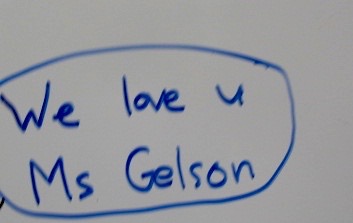 We love u
Ms Gelson